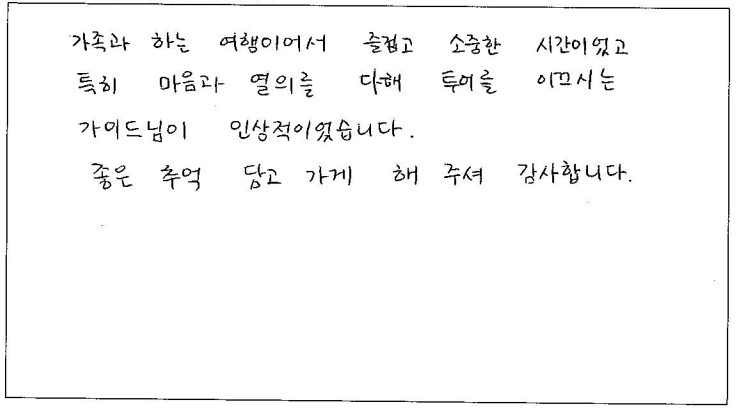 가족과 하는 여행이어서 즐겁고 소중한 시간이었고
특히 마음과 열의를 다해 투어를 이끄시는
가이드님이 인상적이었습니다.
좋은 추억 담고 가게 해 주셔 감사합니다.